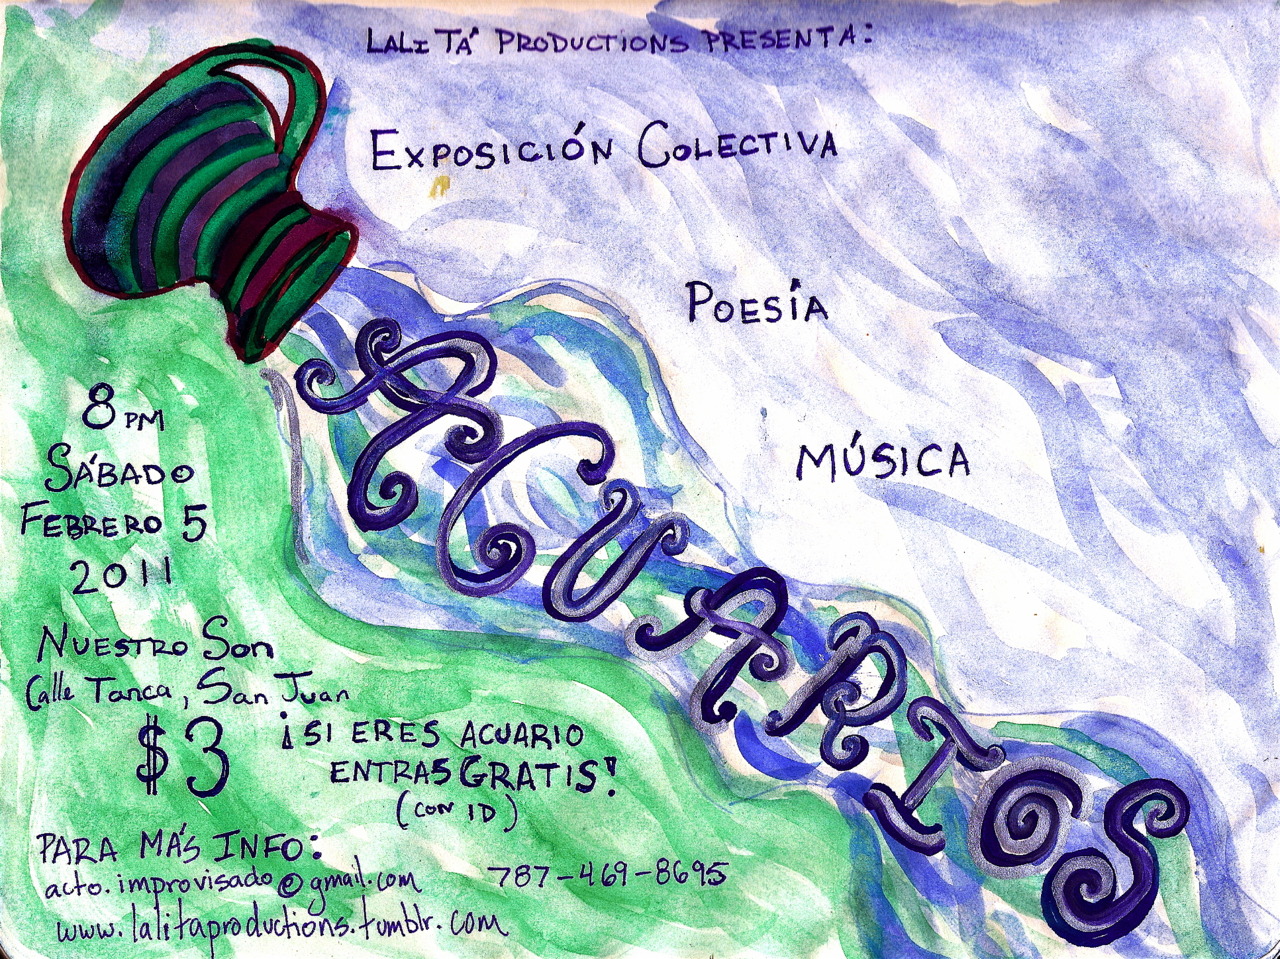 LALI TÁ PRODUCTIONS PRESENTA:
EXPOSICIÓN COLECTIVA
POESÍA
MÚSICA
ACUARIOS
8 PM
SÁBADO
FEBRERO 5
2011
NUESTRO SON
Calle Tanca, San Juan
$3
¡SI ERES ACUARIO
ENTRAS GRATIS!
(CON ID)
PARA MÁS INFO:
acto.improvisado@gmail.com
787-469-8695
www.lalitaproductions.tumblr.com